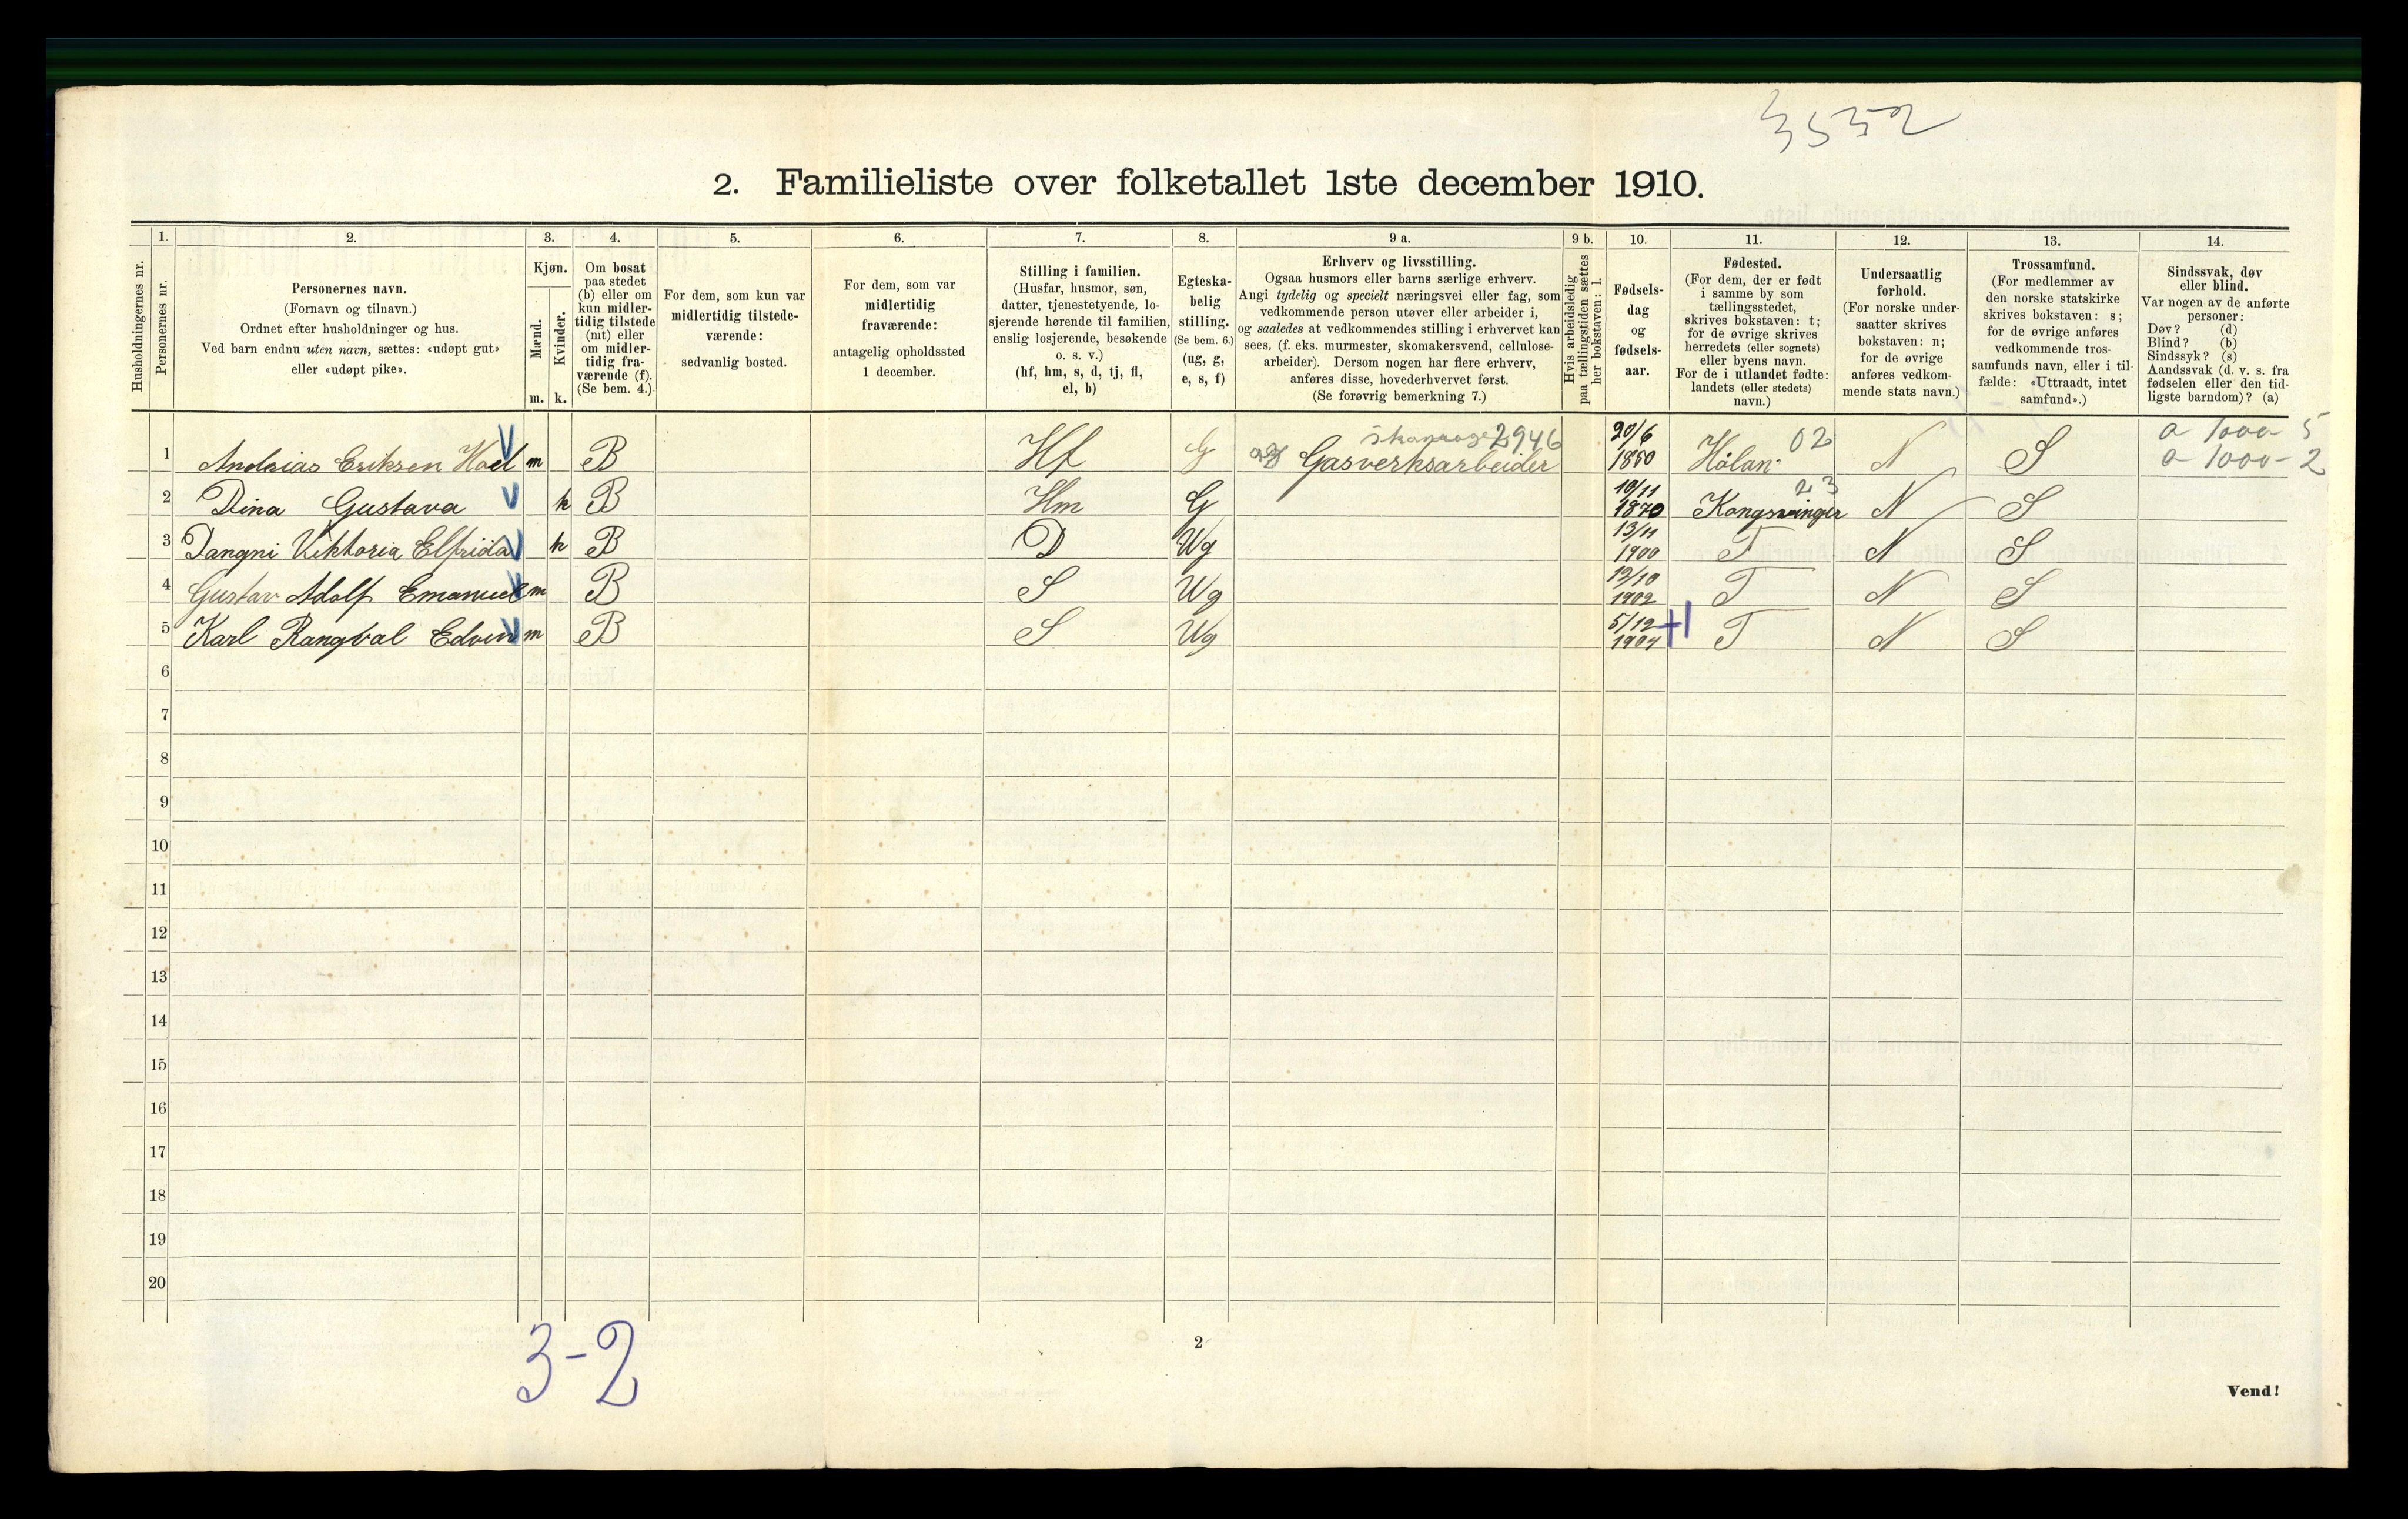 3532
2. Familieliste over folketallet 1ste december 1910.
1. 2. 3. 4. 5. 6. 7. 8. 9 a. 9 b. 10. 11. 12. 13. 14.
Husholdningernes nr.
Personernes nr.
Personernes navn.
(Fornavn og tilnavn.)
Ordnet efter husholdninger og hus.
Ved barn endnu uten navn, sættes: «udøpt gut»
eller «udøpt pike».
Kjøn.
Mænd.
Kvinder.
m. k.
Om bosat
paa stedet
(b) eller om
kun midler-
tidig tilstede
(mt) eller
om midler-
tidig fra-
værende (f).
(Se bem. 4.)
For dem, som kun var
midlertidig tilstede-
værende:
sedvanlig bosted.
For dem, som var
midlertidig
fraværende:
antagelig opholdssted
1 december.
Stilling i familien.
(Husfar, husmor, søn,
datter, tjenestetyende, lo-
sjerende hørende til familien,
enslig losjerende, besøkende
o. s. v.)
(hf, hm, s, d, tj, fl,
el, b)
Egteska-
belig
stilling.
(Se bem. 6.)
(ug, g,
e, s, f)
Erhverv og livsstilling.
Ogsaa husmors eller barns særlige erhverv.
Angi tydelig og specielt næringsvei eller fag, som
vedkommende person utøver eller arbeider i,
og saaledes at vedkommendes stilling i erhvervet kan
sees, (f. eks. murmester, skomakersvend, cellulose-
arbeider). Dersom nogen har flere erhverv,
anføres disse, hovederhvervet først.
(Se forøvrig bemerkning 7.)
Hvis arbeidsledig
paa tællingstiden sættes
her bokstaven: l.
Fødsels-
dag
og
fødsels-
aar.
Fødested.
(For dem, der er født
i samme by som
tællingsstedet,
skrives bokstaven: t;
for de øvrige skrives
herredets (eller sognets)
eller byens navn.
For de i utlandet fødte:
landets (eller stedets)
navn.)
Undersaatlig
forhold.
(For norske under-
saatter skrives
bokstaven: n;
for de øvrige
anføres vedkom-
mende stats navn.)
Trossamfund.
(For medlemmer av
den norske statskirke
skrives bokstaven: s;
for de øvrige anføres
vedkommende tros-
samfunds navn, eller i til-
fælde: «Uttraadt, intet
samfund».)
Sindssvak, døv
eller blind.
Var nogen av de anførte
personer:
Døv? (d)
Blind? (b)
Sindssyk? (s)
Aandssvak (d. v. s. fra
fødselen eller den tid-
ligste barndom)? (a)
2946 20/6 02 a 1000 - 5
1 Andrias Eriksen Hoel m B Hf G Gasverksarbeider 1850 Hølan N S a 1000 - 2
10/11 23
2 Dina Gustava k B Hm G 1870 Kongsvinger N S
13/11
3 Dangni Viktoria Elfrida k B D Ug 1900 T N S
12/10
4 Gustav Adolf Emanuel m B S Ug 1902 T N S
5/12
5 Karl Rangval Edvin m B S Ug 1904 T N S
6
7
8
9
10
11
12
13
14
15
16
17
18
19
20
3-2
2
Vend!